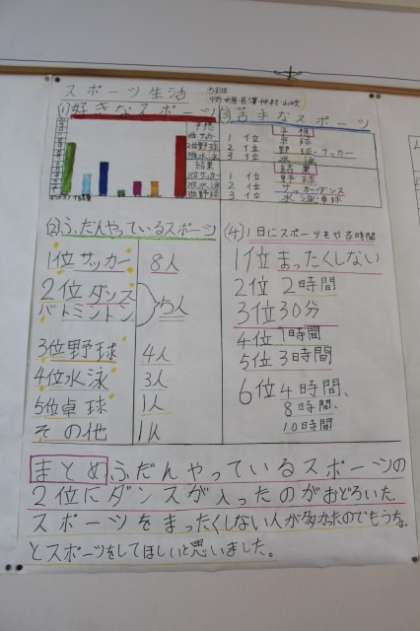 スポーツ生活
(1)好きなスポーツ
(3)苦手なスポーツ
予想
1位 卓球
2位 野球・サッカー
3位 水泳
結果
1位 野球
2位 サッカー・ダンス
3位 水泳・卓球
(2)ふだんやっているスポーツ
1位サッカー 8人
2位ダンス
バトミントン 5人
3位野球 4人
4位水泳 3人
5位卓球 1人
その他 1人
(4)1日にスポーツをやる時間
1位まったくしない
2位 2時間
3位30分
4位1時間
5位3時間
6位4時間、
8時間、
10時間
まとめ ふだんやっているスポーツの
2位にダンスが入ったのがおどろいた。
スポーツをまったくしない人が多かったのでもうちょっ
とスポーツをしてほしいと思いました。